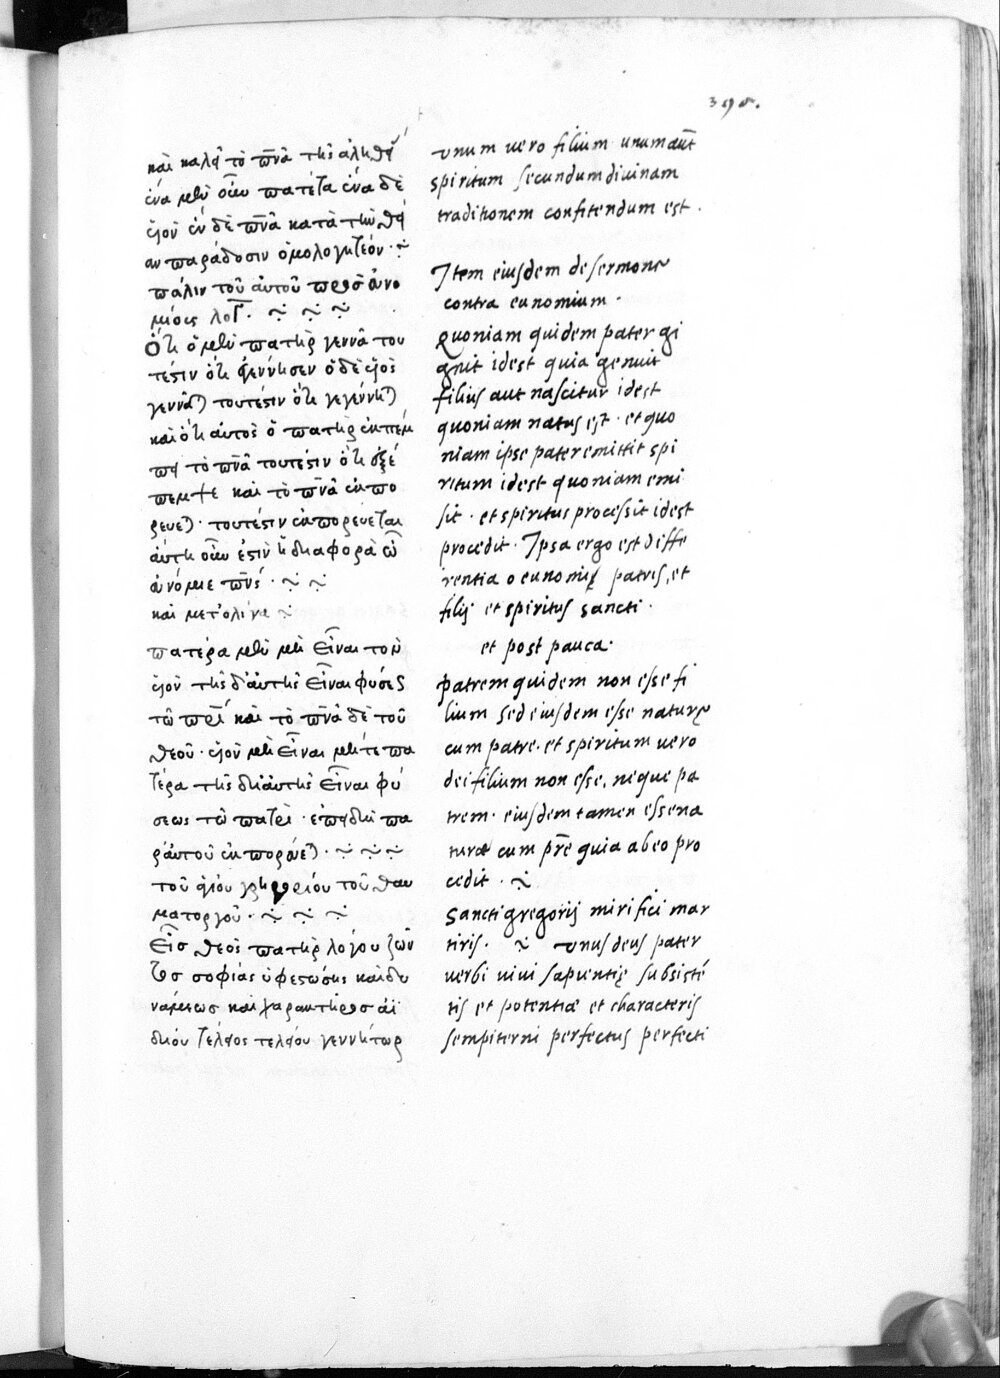 398.
καὶ καλεῖ τὸ πν̅α τῆς ἀληθεί
ἕνα μὲν οὖν πατέρα ἕνα δὲ
υἱὸν ἓν δὲ πν̅α κατὰ τὴν θεί
αν παράδοσιν ὁμολογητέον·~
πάλιν τοῦ αὐτοῦ πρὸσ ἀνο
μίους λόγ. ~ ~ ~
Ὅτι ὁ μὲν πατὴρ γεννᾶ του
τέστιν ὅτι ἐγέννησεν ὁ δὲ υἱὸς
γεννᾶται τουτέστιν ὅτι γεγέννηται
καὶ ὅτι αὐτὸς ὁ πατὴρ ἐκπέμ
πει τὸ πν̅α τουτέστιν ὅτι ἐξέ
πεμψε καὶ τὸ πν̅α ἐκπο
ρεύεται· τουτέστιν ἐκπορεύεται
αὕτη οὖν ἐστὶν ἡ διαφορὰ ὦ
ἀνόμιε πν̅ς· ~ ~
καὶ μετ' ὀλίγα ~
πατέρα μὲν μὴ εἶναι τὸν
υἱὸν τῆς δ' αὐτῆς εἶναι φύσεως
τῷ πρ̅ί καὶ τὸ πν̅α δὲ τοῦ
θεοῦ· υἱὸν μὴ εἶναι μήτε πα
τέρα τῆς δὲ αὐτῆς εἶναι φύ
σεως τῷ πατρὶ· ἐπειδὴ πα
ρ' αὐτοῦ ἐκπορεύεται· ~ ~ ~
τοῦ ἁγίου γρηγορίου τοῦ θαυ
ματοργοῦ· ~ ~ ~
Εἷσ θεὸς πατὴρ λόγου ζῶν
τος σοφίας ὑφεστώσης καὶ δυ
νάμεωσ καὶ χαρακτῆροσ ἀϊ
δίου τέλειος τελείου γεννήτωρ
vnum uero filium unum aūt
spiritum secundum diuinam
traditionem confitendum est.
Item eiusdem de sermone
contra eunomium.
Quoniam quidem pater gi
gnit idest quia genuit
filius aut nascitur idest
quoniam natus est· et quo
niam ipse pater emittit spi
ritum idest quoniam emi
sit· et spiritus processit idest
procedit· Ipsa ergo est diffe
rentia o eunomię patris, et
filij et spiritus sancti·
et post pauca·
patrem quidem non esse fi
lium sed eiusdem esse naturę
cum patre· et spiritum uero
dei filium non esse, neque pa
trem· eiusdem tamen esse na
turæ cum p̄re quia ab eo pro
cedit· ~
Sancti gregorij mirifici mar
tiris· ~ vnus deus pater
uerbi uiui sapientię subsistē
tis et potentiæ et characteris
sempiterni perfectus perfecti